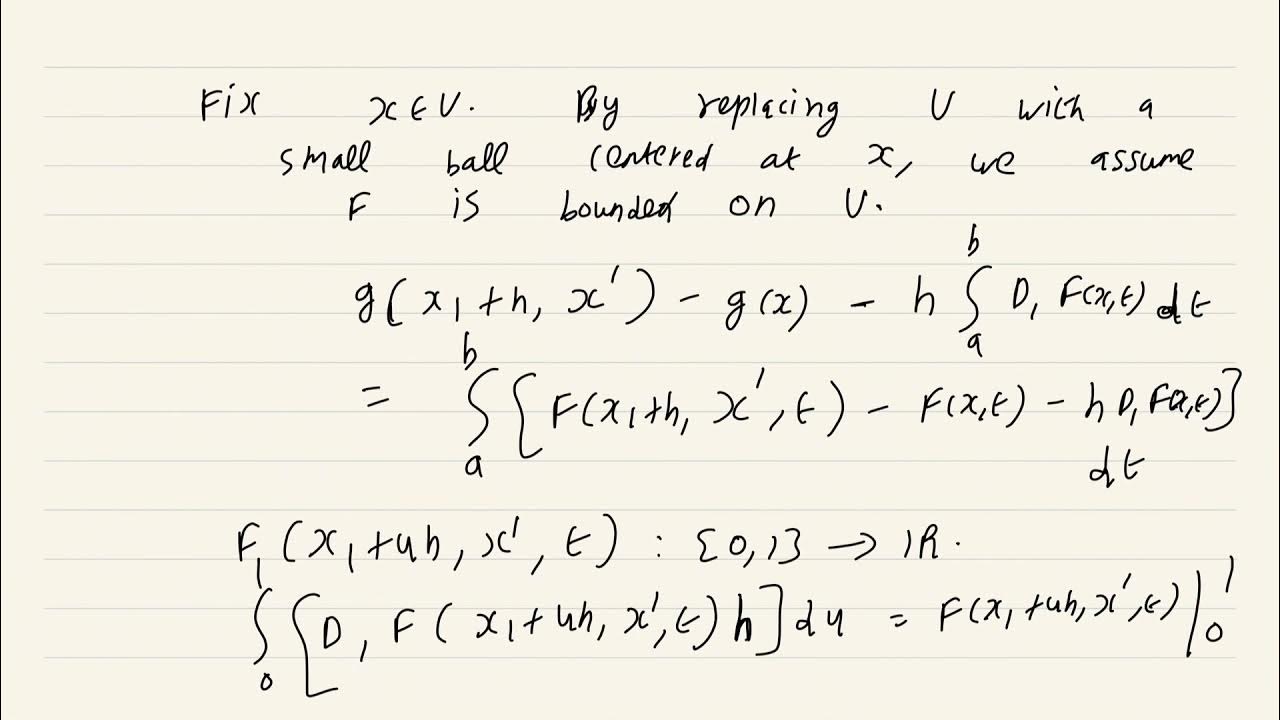 Fix x ∈ U. By replacing U with a
small ball centered at x, we assume
F is bounded on U.
g(x₁+h, x′) − g(x) − h ∫ₐᵇ D₁ F(x,t) dt
= ∫ₐᵇ [F(x₁+h, x′, t) − F(x,t) − h D₁ F(x,t)]
dt
F(x₁+uh, x′, t) : [0,1] → ℝ.
∫₀¹ [D₁ F(x₁+uh, x′, t) h] du = F(x₁+uh, x′, t) |₀¹